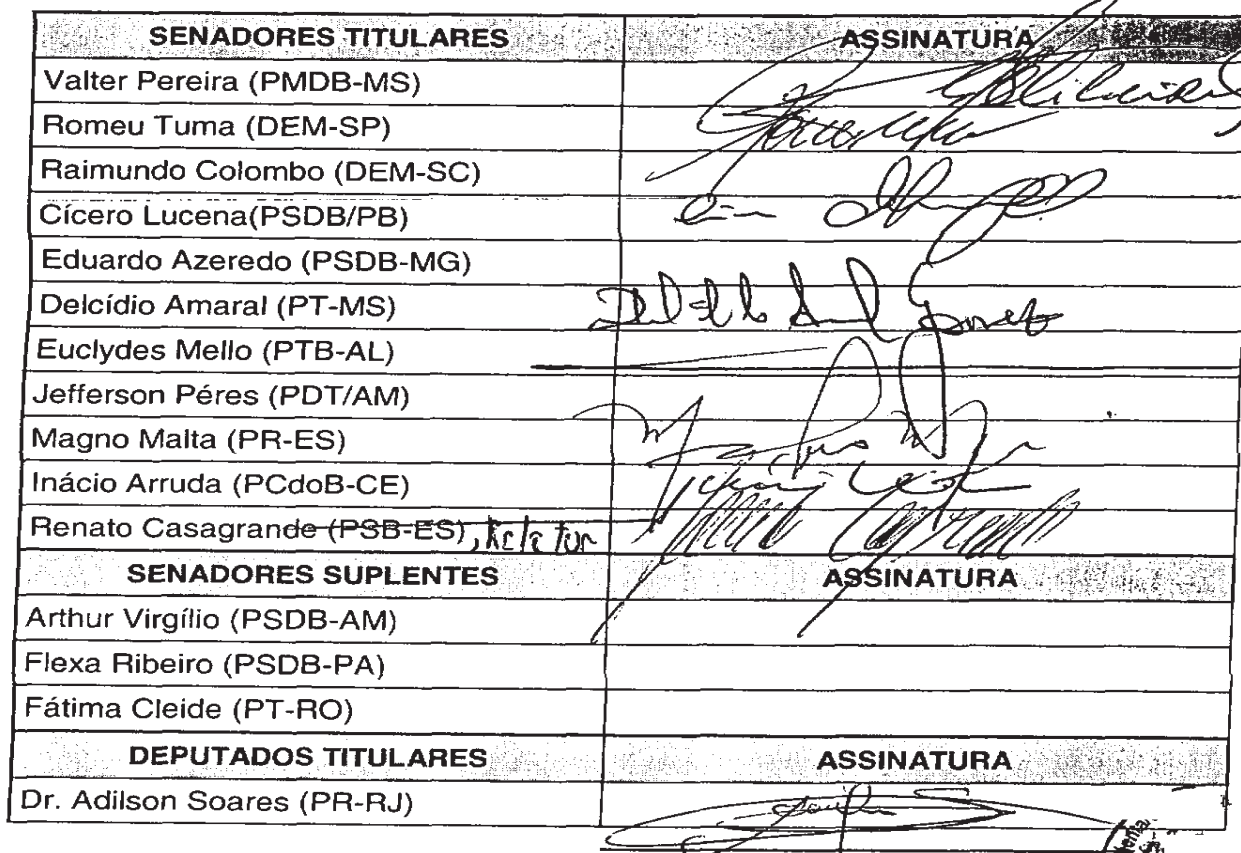 SENADORES TITULARES ASSINATURA
Valter Pereira (PMDB-MS)
Romeu Tuma (DEM-SP)
Raimundo Colombo (DEM-SC)
Cícero Lucena(PSDB/PB)
Eduardo Azeredo (PSDB-MG)
Delcídio Amaral (PT-MS)
Euclydes Mello (PTB-AL)
Jefferson Péres (PDT/AM)
Magno Malta (PR-ES)
Inácio Arruda (PCdoB-CE)
Renato Casagrande (PSB-ES), Relator
SENADORES SUPLENTES ASSINATURA
Arthur Virgílio (PSDB-AM)
Flexa Ribeiro (PSDB-PA)
Fátima Cleide (PT-RO)
DEPUTADOS TITULARES ASSINATURA
Dr. Adilson Soares (PR-RJ)